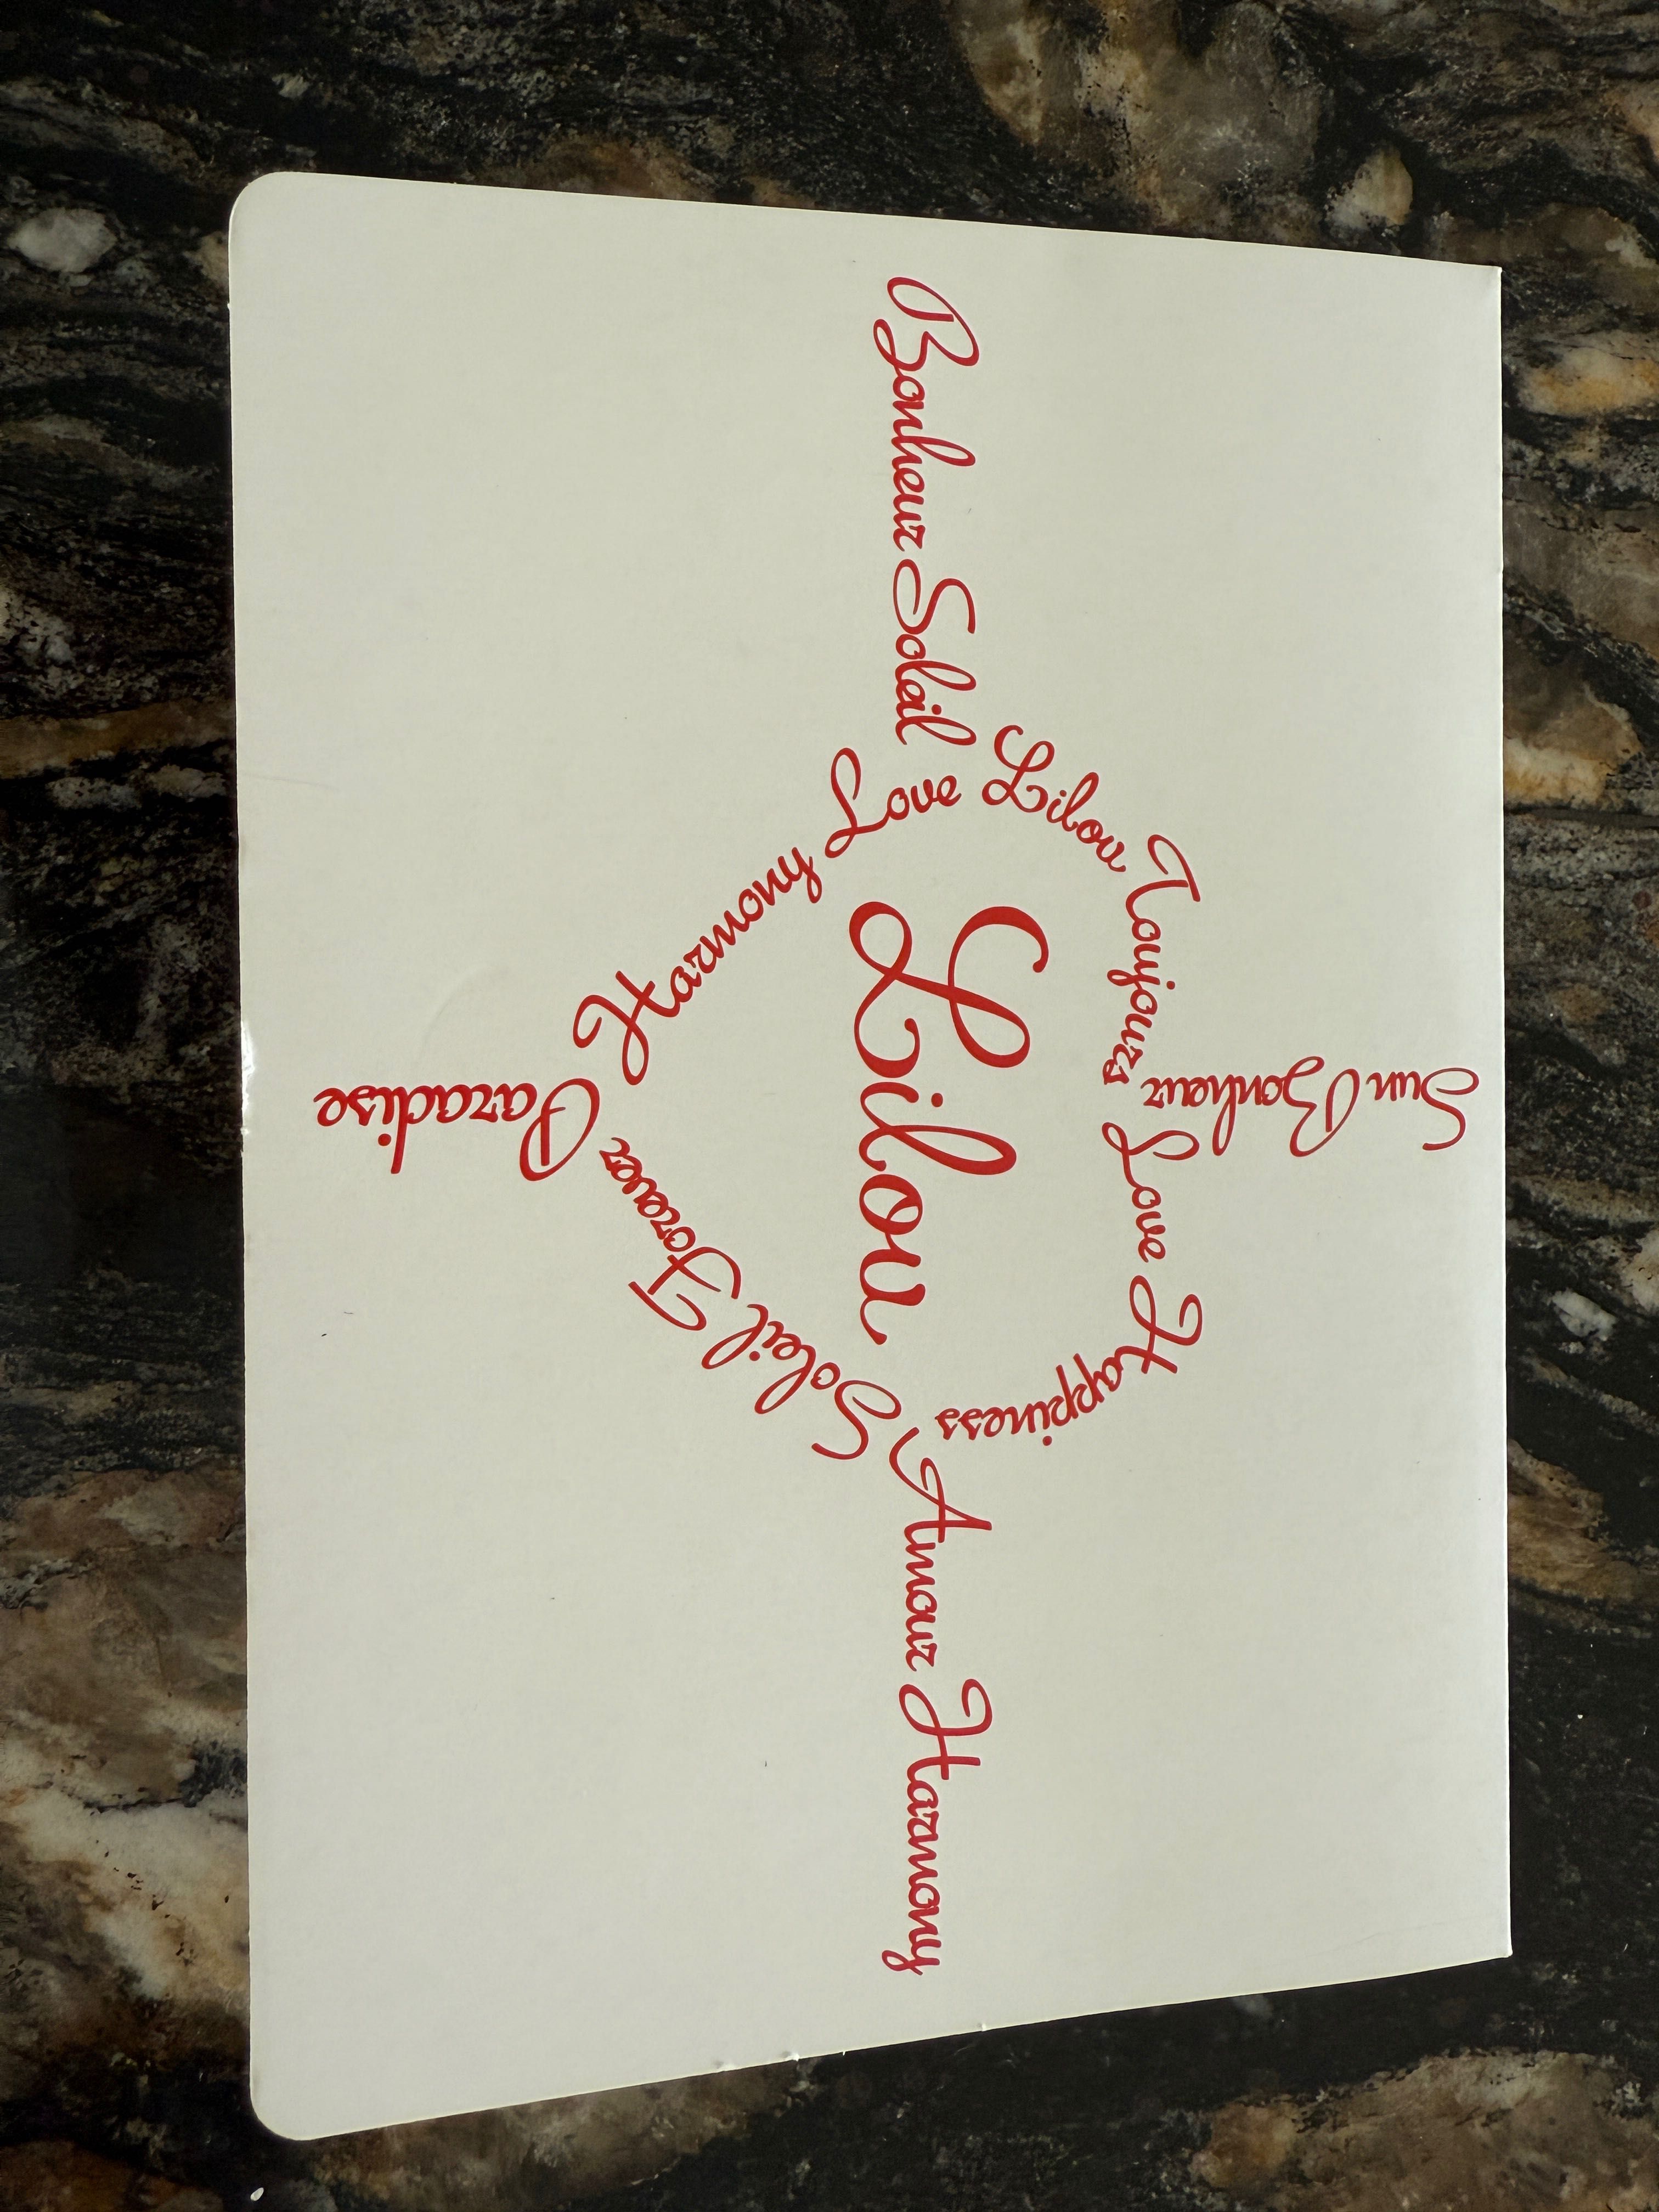 Sun Bonheur
Lilou Toujours Love Happiness
Bonheur Soleil
Lilou
Amour Harmony
Love
Harmony
Soleil Forever
Paradise